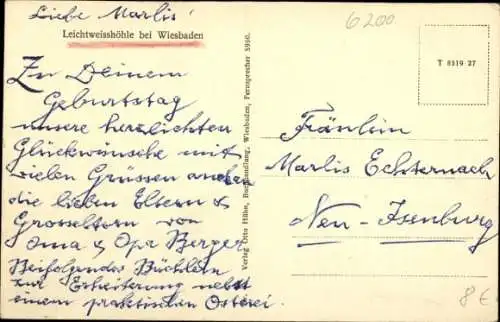 Liebe Marlis!
Leichtweisshöhle bei Wiesbaden
Zu Deinem
Geburtstag
unsere herzlichsten
Glückwünsche mit
vielen Grüssen an
die lieben Eltern &
Grosseltern von
Oma & Opa Berger
Beifolgendes Büchlein
zur Erheiterung nebst
einem praktischen Osterei.
Verlag Otto Höhn, Buchhandlung, Wiesbaden, Fernsprecher 5950.
6200
T 8319 27
Fräulein
Marlis Echternach
Neu-Isenburg
8 €